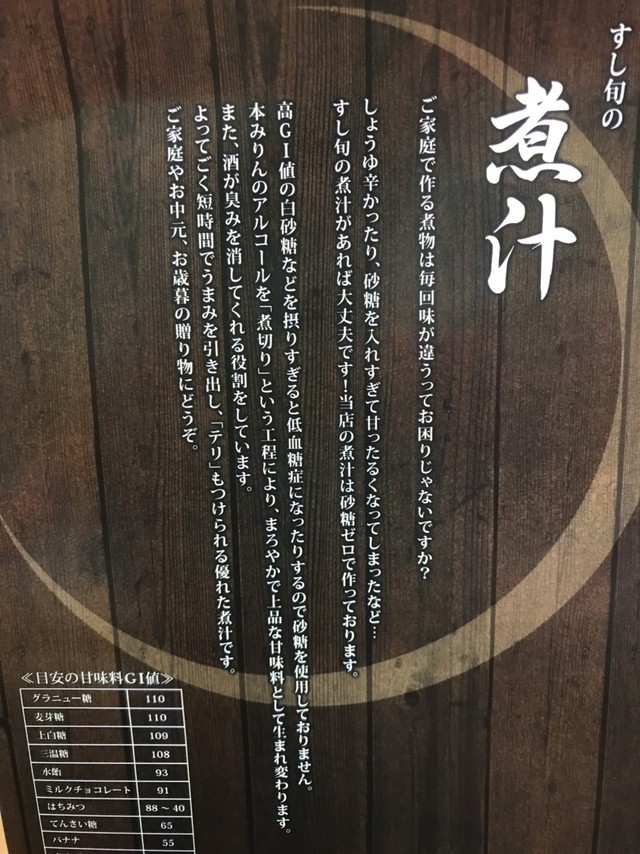 すし旬の
煮汁
ご家庭で作る煮物は毎回味が違うってお困りじゃないですか？
しょうゆ辛かったり、砂糖を入れすぎて甘ったるくなってしまったなど…
すし旬の煮汁があれば大丈夫です！当店の煮汁は砂糖ゼロで作っております。
高GI値の白砂糖などを摂りすぎると低血糖症になったりするので砂糖を使用しておりません。
本みりんのアルコールを「煮切り」という工程により、まろやかで上品な甘味料として生まれ変わります。
また、酒が臭みを消してくれる役割をしています。
よってごく短時間でうまみを引き出し、「テリ」もつけられる優れた煮汁です。
ご家庭やお中元、お歳暮の贈り物にどうぞ。
≪目安の甘味料GI値≫
グラニュー糖 110
麦芽糖 110
上白糖 109
三温糖 108
水飴 93
ミルクチョコレート 91
はちみつ 88～40
てんさい糖 65
バナナ 55